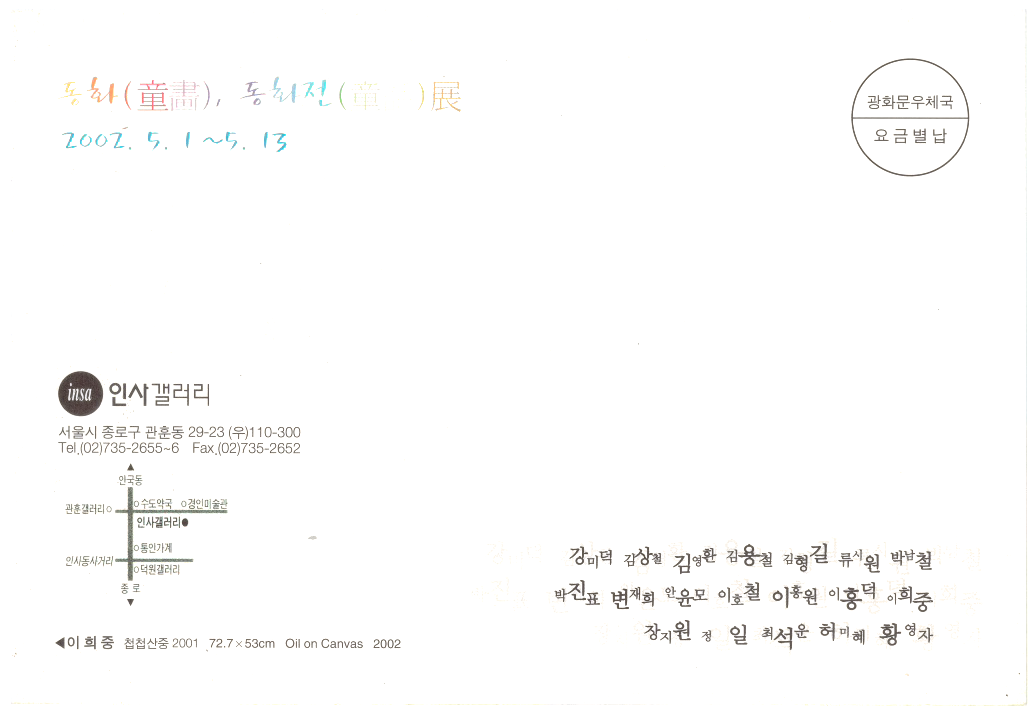 동화(童畵), 동화전(童 )展
2002. 5. 1 ~ 5. 13
광화문우체국
요금별납
insa 인사갤러리
서울시 종로구 관훈동 29-23 (우)110-300
Tel.(02)735-2655~6 Fax.(02)735-2652
▲
안국동
수도약국 경인미술관
관훈갤러리
인사갤러리
통인가게
인사동사거리
덕원갤러리
종로
▼
강미덕 김상철 김영환 김용철 김형길 류시원 박남철
박진표 변재희 안윤모 이호철 이흥원 이흥덕 이희중
장지원 정 일 최석운 허미혜 황영자
◀이희중 첩첩산중 2001 72.7×53cm Oil on Canvas 2002